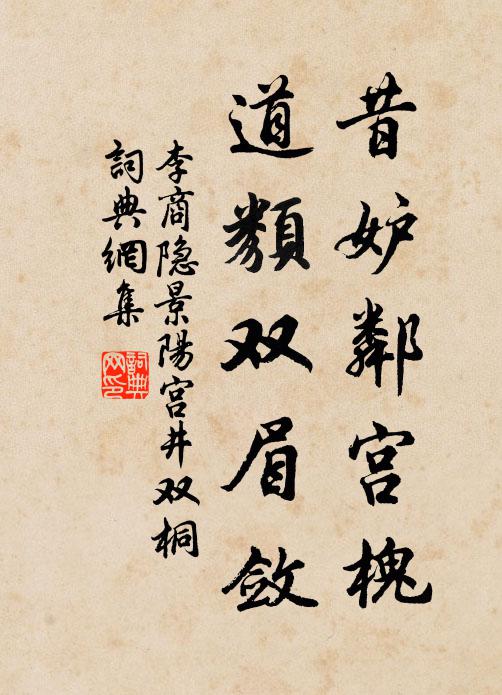 昔妒鄰宫槐
道類双眉斂
李商隐景陽宫井双桐
詞典網集
詞典
网印